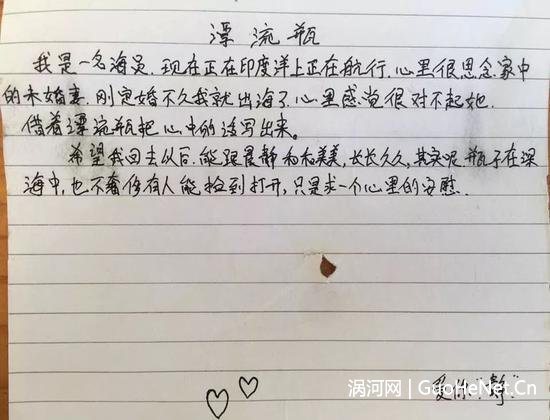 漂流瓶
我是一名海员.现在正在印度洋上正在航行.心里很思念家中
的未婚妻.刚定婚不久我就出海了.心里感觉很对不起她.
借着漂流瓶把心中的话写出来。
希望我回去以后.能跟晨静和和美美,长长久久,其实呢瓶子在深
海中,也不奢侈有人能捡到打开,只是求一个心里的安慰.
爱你“静”
涡河网 | GuoHeNet.Cn